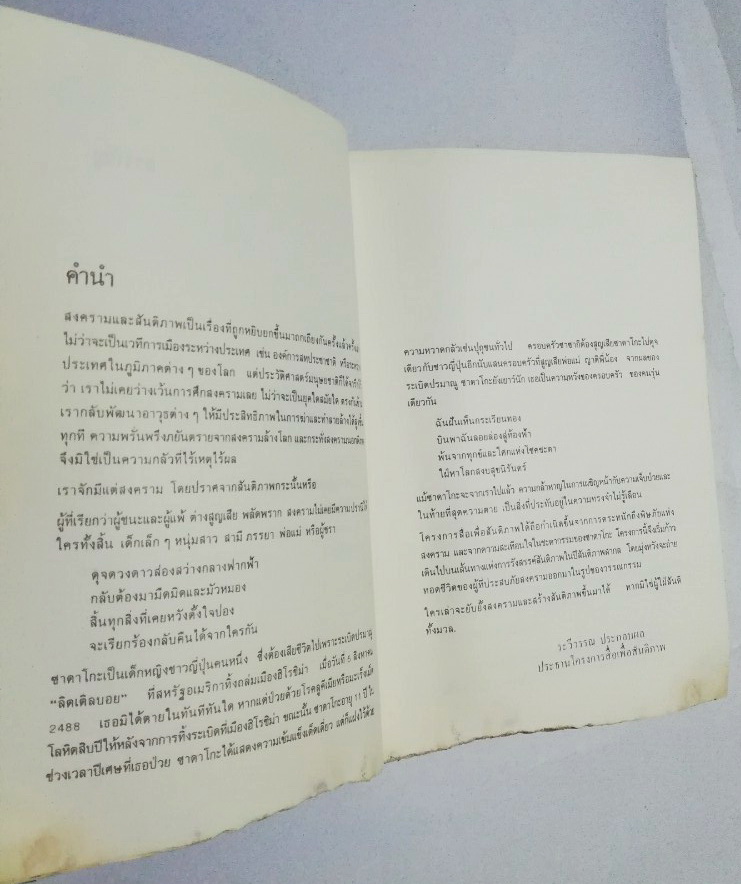 คำนำ
สงครามและสันติภาพเป็นเรื่องที่ถูกหยิบยกขึ้นมาถกเถียงกันครั้งแล้วครั้ง
ไม่ว่าจะเป็นเวทีการเมืองระหว่างประเทศ เช่น องค์การสหประชาชาติ หรือ
ประเทศในภูมิภาคต่าง ๆ ของโลก แต่ประวัติศาสตร์มนุษยชาติก็ได้
ว่า เราไม่เคยว่างเว้นการศึกสงครามเลย ไม่ว่าจะเป็นยุคใดสมัยใด ตรงกันข้าม
เรากลับพัฒนาอาวุธต่าง ๆ ให้มีประสิทธิภาพในการฆ่าและทำลายล้างได้
ทุกที ความพรั่นพรึงภยันตรายจากสงครามล้างโลก และกระทั่งสงคราม
จึงมิใช่เป็นความกลัวที่ไร้เหตุไร้ผล
เราจักมีแต่สงคราม โดยปราศจากสันติภาพกระนั้นหรือ
ผู้ที่เรียกว่าผู้ชนะและผู้แพ้ ต่างสูญเสีย พลัดพราก สงครามไม่เคยมีความปรานี
ใครทั้งสิ้น เด็กเล็ก ๆ หนุ่มสาว สามี ภรรยา พ่อแม่ หรือผู้ชรา
ดุจดวงดาวส่องสว่างกลางฟากฟ้า
กลับต้องมามืดมิดและมัวหมอง
สิ้นทุกสิ่งที่เคยหวังตั้งใจปอง
จะเรียกร้องกลับคืนได้จากใครกัน
ซาดาโกะเป็นเด็กหญิงชาวญี่ปุ่นคนหนึ่ง ซึ่งต้องเสียชีวิตไปเพราะระเบิดปรมาณู
“ลิตเติลบอย” ที่สหรัฐอเมริกาทิ้งถล่มเมืองฮิโรชิม่า เมื่อวันที่ 6 สิงหาคม
2488 เธอมิได้ตายในทันทีทันใด หากแต่ป่วยด้วยโรคลูคีเมียหรือมะเร็งเม็ด
โลหิตสิบปีให้หลังจากการทิ้งระเบิดที่เมืองฮิโรชิม่า ขณะนั้น ซาดาโกะอายุ 11 ปี ใน
ช่วงเวลาปีเศษที่เธอป่วย ซาดาโกะได้แสดงความเข้มแข็งเด็ดเดี่ยว แต่ก็แฝงไว้ด้วย
ความหวาดกลัวเช่นปุถุชนทั่วไป ครอบครัวซาซากิต้องสูญเสียซาดาโกะไปดุจ
เดียวกับชาวญี่ปุ่นอีกนับแสนครอบครัวที่สูญเสียพ่อแม่ ญาติพี่น้อง จากผลของ
ระเบิดปรมาณู ซาดาโกะยังเยาว์นัก เธอเป็นความหวังของครอบครัว ของคนรุ่น
เดียวกัน
ฉันฝันเห็นกระเรียนทอง
บินพาฉันลอยล่องสู่ท้องฟ้า
พ้นจากทุกข์และโศกแห่งโชคชะตา
ไปหาโลกสงบสุขนิรันดร์
แม้ซาดาโกะจะจากเราไปแล้ว ความกล้าหาญในการเผชิญหน้ากับความเจ็บป่วยและ
ในท้ายที่สุดความตาย เป็นสิ่งที่ประทับอยู่ในความทรงจำไม่รู้เลือน
โครงการสื่อเพื่อสันติภาพได้ถือกำเนิดขึ้นจากการตระหนักถึงพิษภัยแห่ง
สงคราม และจากความสะเทือนใจในชะตากรรมของซาดาโกะ โครงการนี้จึงเริ่มก้าว
เดินไปบนเส้นทางแห่งการรังสรรค์สันติภาพในปีสันติภาพสากล โดยมุ่งหวังจะถ่าย
ทอดชีวิตของผู้ที่ประสบภัยสงครามออกมาในรูปของวรรณกรรม
ใครเล่าจะยับยั้งสงครามและสร้างสันติภาพขึ้นมาได้ หากมิใช่ผู้ใฝ่สันติ
ทั้งมวล.
ระวีวรรณ
ประธานโครงการสื่อเพื่อสันติภาพ